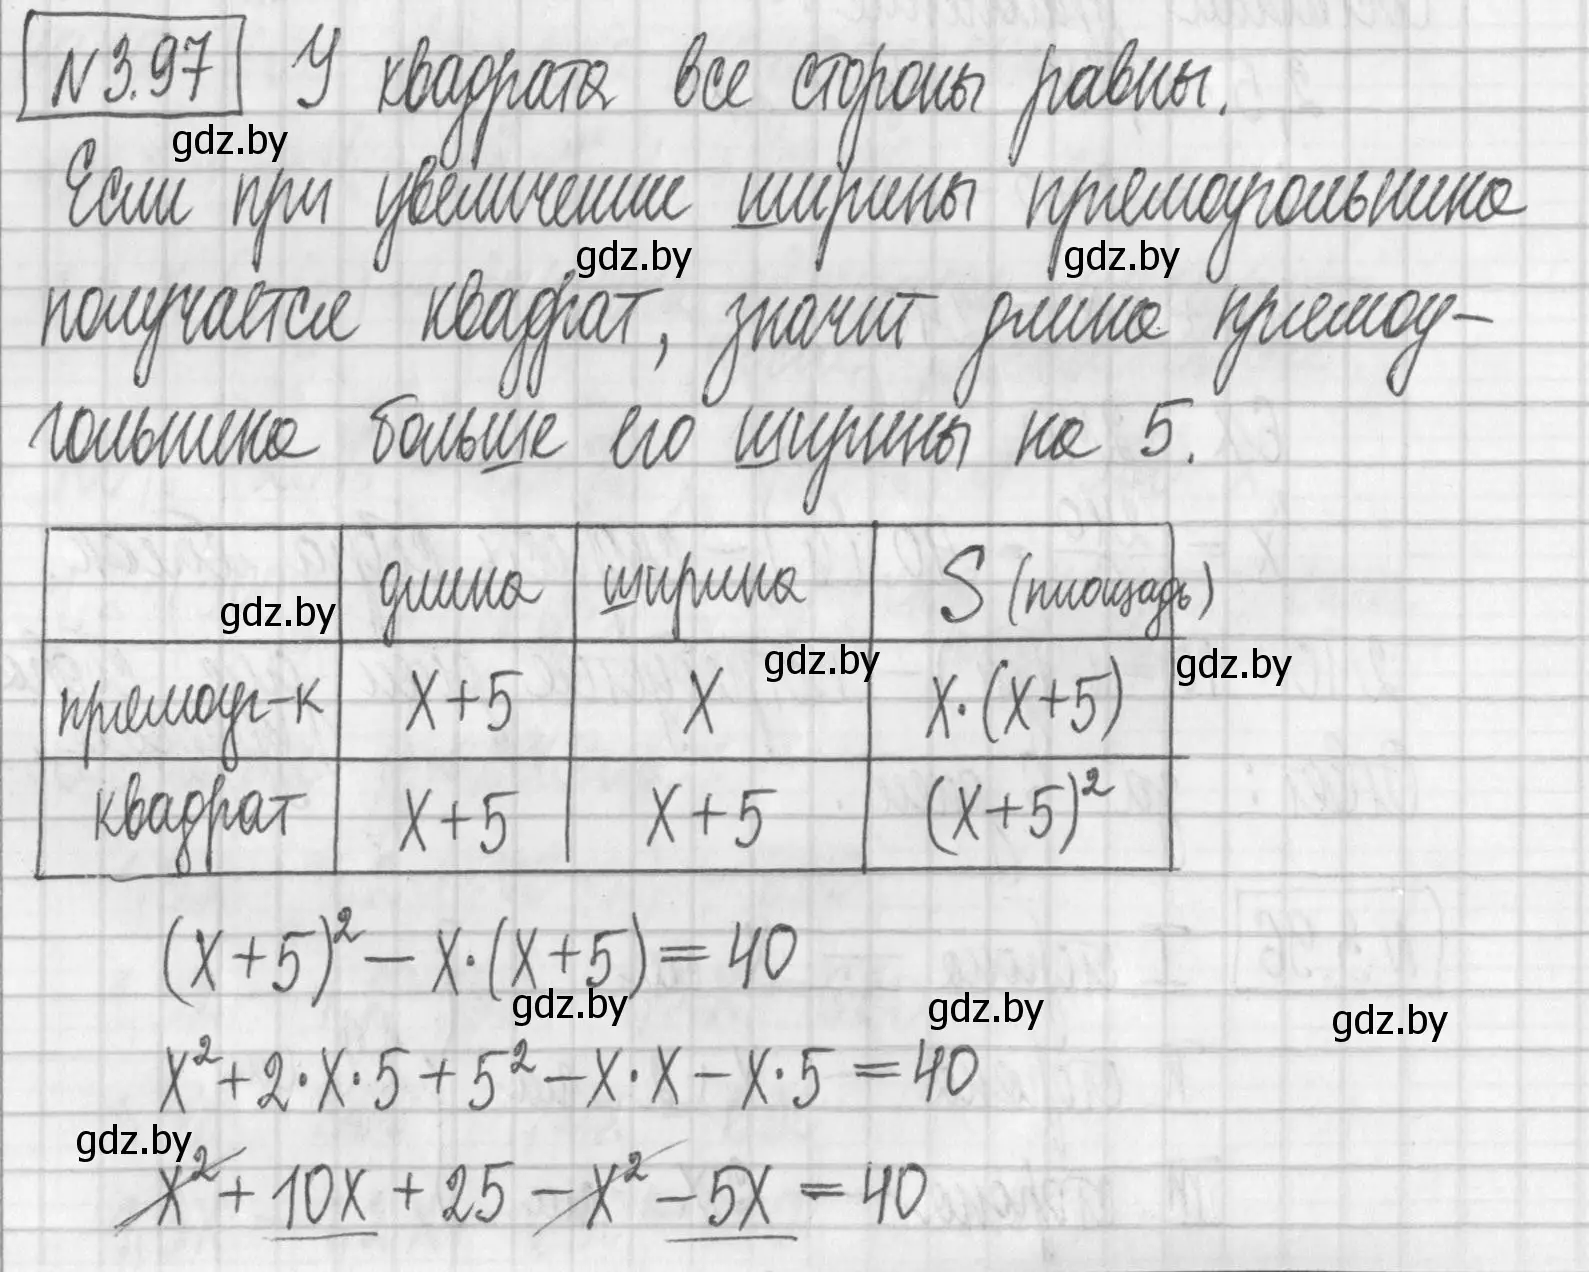 N 3.97 У квадрата все стороны равны.
gdz.by
Если при увеличении ширины прямоугольника
gdz.by gdz.by
получается квадрат, значит длина прямоу-
гольника больше его ширины на 5.
длина ширина S (площадь)
gdz.by
gdz.by gdz.by
прямоуг-к x+5 x x·(x+5)
квадрат x+5 x+5 (x+5)²
(x+5)² - x·(x+5) = 40
gdz.by gdz.by gdz.by
x² + 2·x·5 + 5² - x·x - x·5 = 40
gdz.by
x² + 10x + 25 - x² - 5x = 40